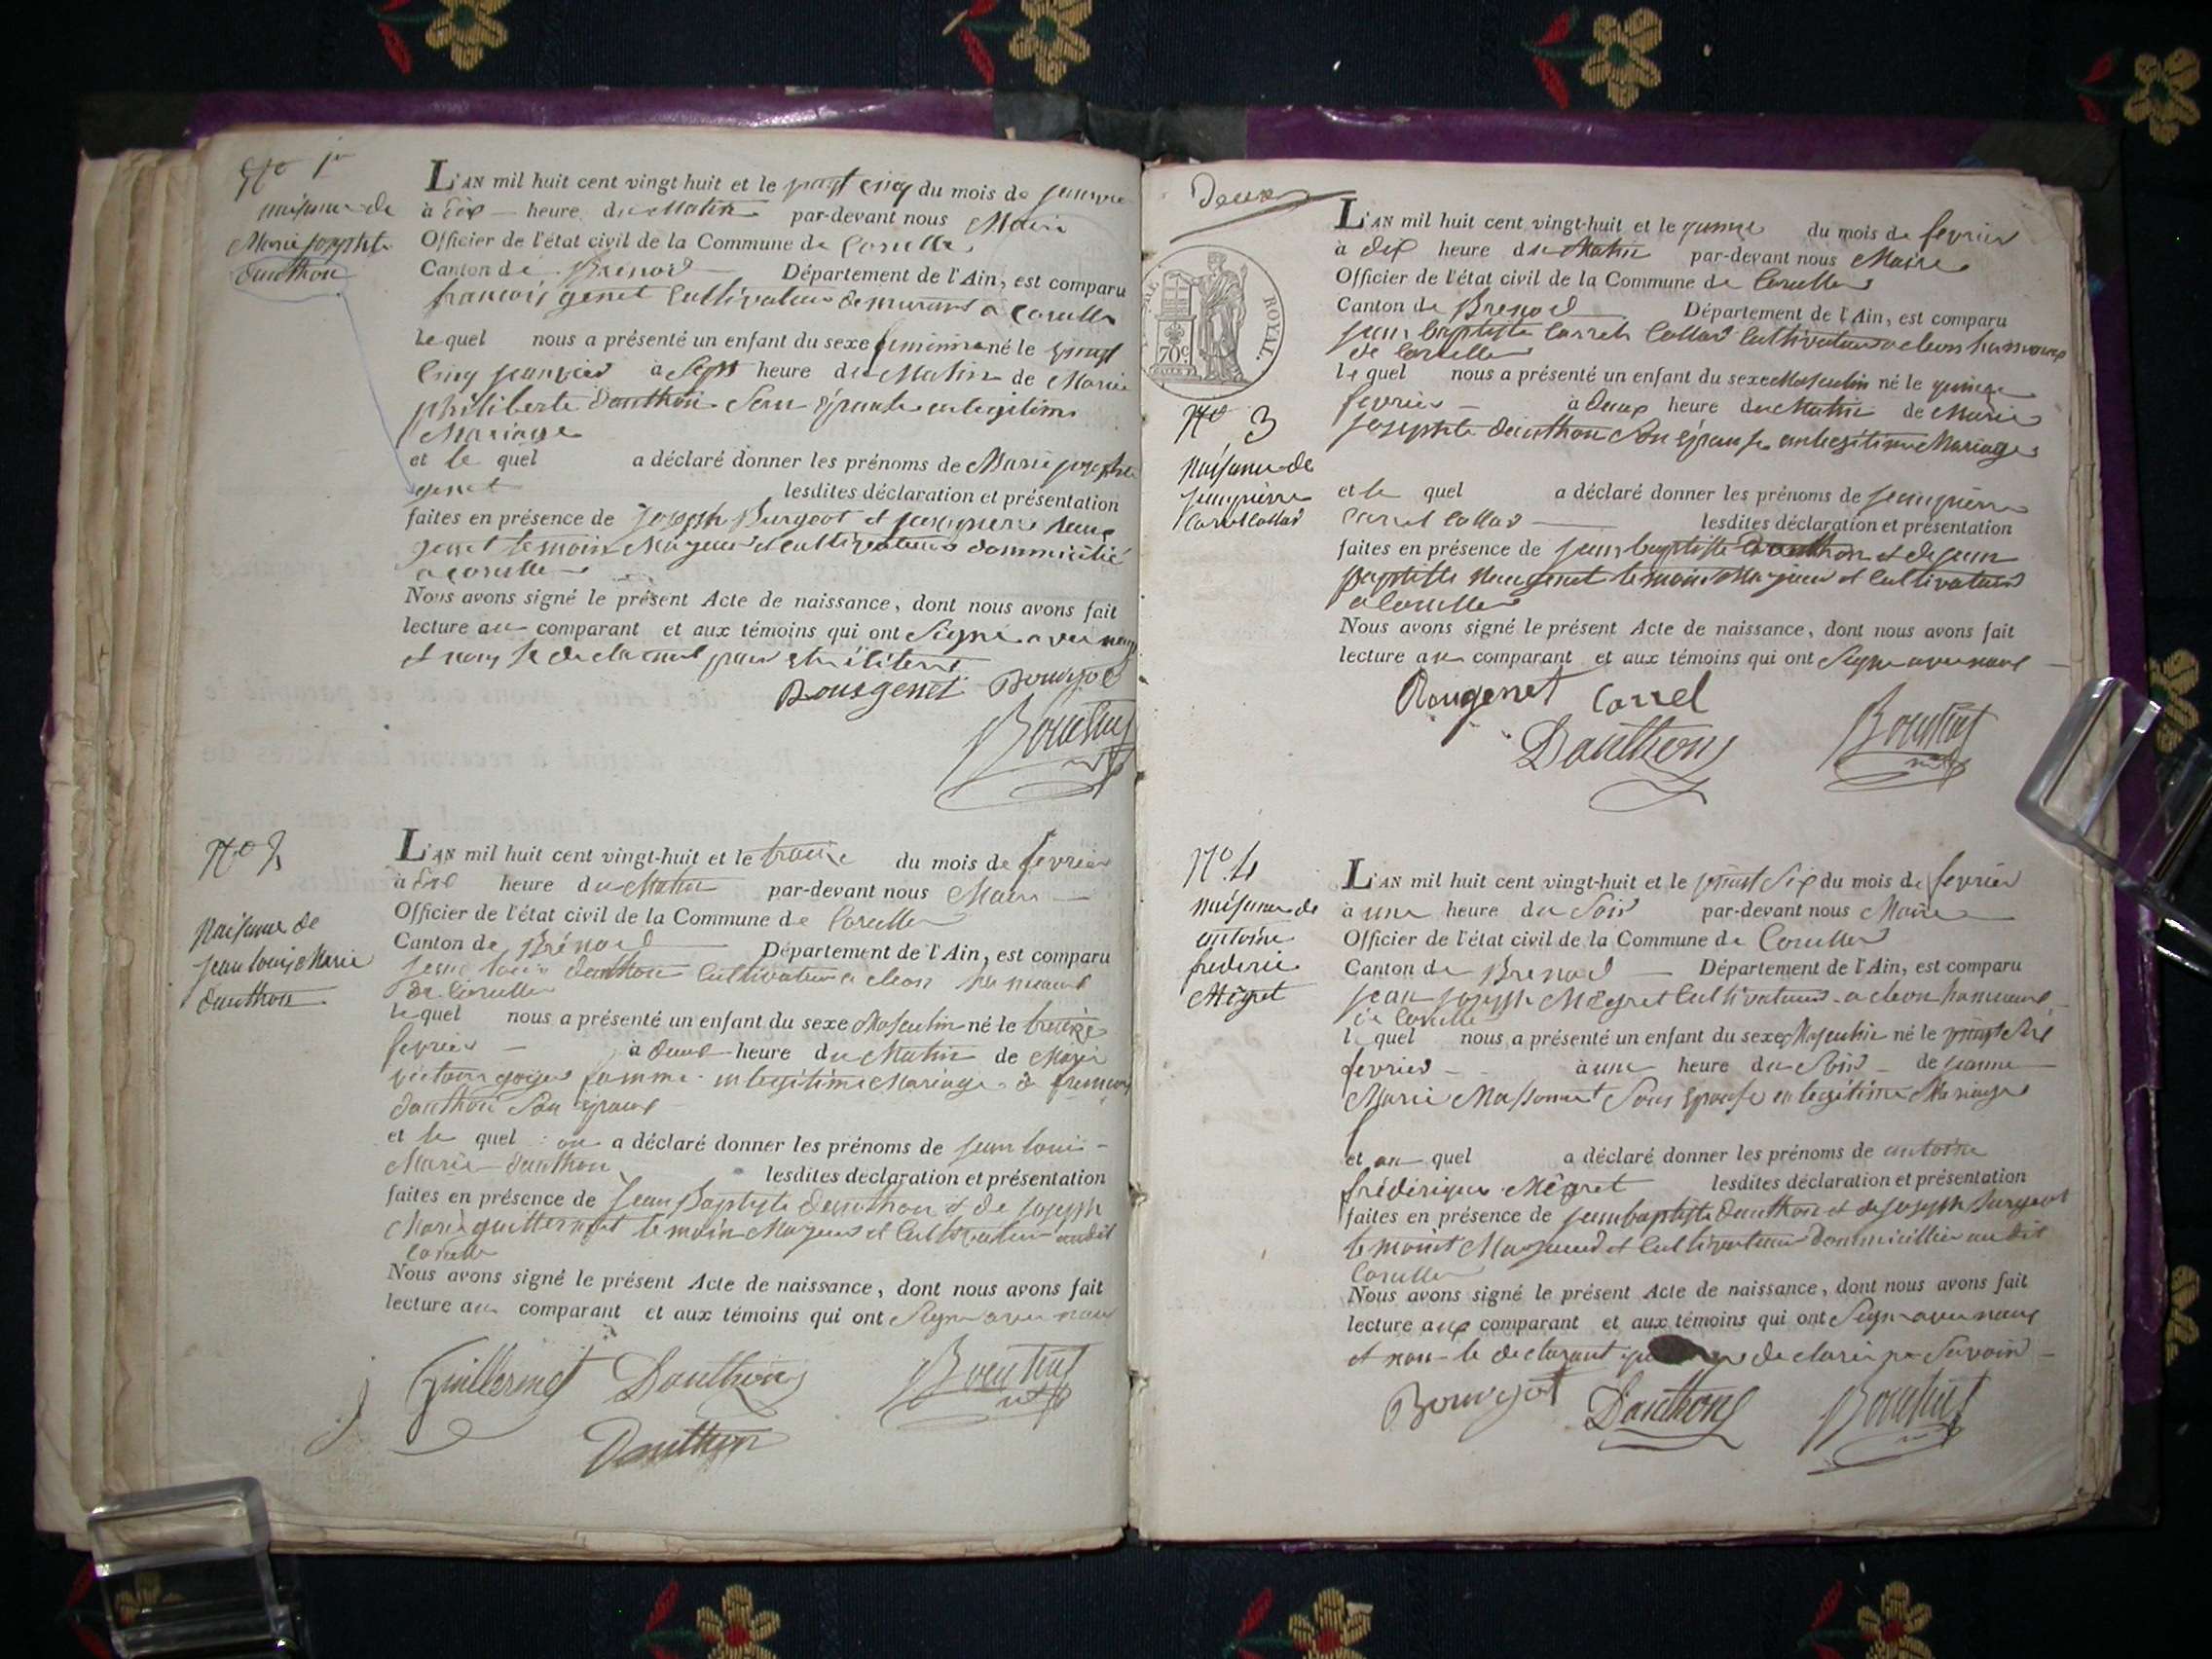 No 1er
naissance de
Marie josephte
Danthon
L'AN mil huit cent vingt huit et le vingt cinq du mois de janvier
à dix heure du Matin par-devant nous Maire
Officier de l'état civil de la Commune de Corcelle
Canton de Brénod Département de l'Ain, est comparu
francois genet Cultivateur demeurant a Corcelle
le quel nous a présenté un enfant du sexe feminin né le vingt
Cinq janvier à Sept heure du Matin de Marie
philiberte Danthon Son épouse en legitime
Mariage
et le quel a déclaré donner les prénoms de Marie josephte
genet lesdites déclaration et présentation
faites en présence de Joseph Burgeot et jeanpierre
genet temoin Majeur et cultivateurs dommicilié
a corcelle
Nous avons signé le présent Acte de naissance, dont nous avons fait
lecture au comparant et aux témoins qui ont Signé avec nous
et non le declarant pour etre iliteré
Rousgenet Bourgot
No 2
Naissance de
jean louis Marie
Danthon
L'AN mil huit cent vingt-huit et le treize du mois de fevrier
à dix heure du Matin par-devant nous Maire
Officier de l'état civil de la Commune de Corcelle
Canton de Brénod Département de l'Ain, est comparu
jean louis Danthon Cultivateur a cleon hameau
de Corcelle
le quel nous a présenté un enfant du sexe Masculin né le treize
fevrier à deux heure du Matin de Marie
victoire femme en legitime Mariage a francois
Danthon Son epoux
et le quel on a déclaré donner les prénoms de jean louis
Marie Danthon lesdites déclaration et présentation
faites en présence de Jean Baptiste Danthon et de joseph
Marie guillermet temoin Majeur et Cultivateur audit
Corcelle
Nous avons signé le présent Acte de naissance, dont nous avons fait
lecture au comparant et aux témoins qui ont Signé avec nous
Guillermet Danthon
Danthon
Deux
ROYAL.
70c.
No 3
Naissance de
jeanpierre
Carrel Collas
L'AN mil huit cent vingt-huit et le quinze du mois de fevrier
à dix heure du Matin par-devant nous Maire
Officier de l'état civil de la Commune de Corcelle
Canton de Brenod Département de l'Ain, est comparu
jean baptiste Carrel Collas Cultivateur a cleon hameau
de Corcelle
le quel nous a présenté un enfant du sexe Masculin né le quinze
fevrier à deux heure du Matin de Marie
josephte Danthon Son épouse en legitime Mariage
et le quel a déclaré donner les prénoms de jeanpierre
Carrel Collas lesdites déclaration et présentation
faites en présence de jean baptiste Danthon et de jean
baptiste genet temoin Majeur et Cultivateur
a Corcelle
Nous avons signé le présent Acte de naissance, dont nous avons fait
lecture au comparant et aux témoins qui ont Signé avec nous
Rougenet Carrel
Danthon
No 4
naissance de
antoine
frederic
Mégret
L'AN mil huit cent vingt-huit et le vingt Six du mois de fevrier
à une heure du Soir par-devant nous Maire
Officier de l'état civil de la Commune de Corcelle
Canton de Brenod Département de l'Ain, est comparu
jean joseph Mégret Cultivateur a cleon hameau
de Corcelle
le quel nous a présenté un enfant du sexe Masculin né le vingt Six
fevrier à une heure du Soir de jeanne
Marie Massonnet Son Epouse en legitime Mariage
et au quel a déclaré donner les prénoms de antoine
frédérique Mégret lesdites déclaration et présentation
faites en présence de jeanbaptiste Danthon et de joseph Burgeot
temoint Majeurd et Cultivateur dommicillier audit
Corcelle
Nous avons signé le présent Acte de naissance, dont nous avons fait
lecture aux comparant et aux témoins qui ont Signé avec nous
et non le declarant declaré ne Savoir
Bourgot Danthon